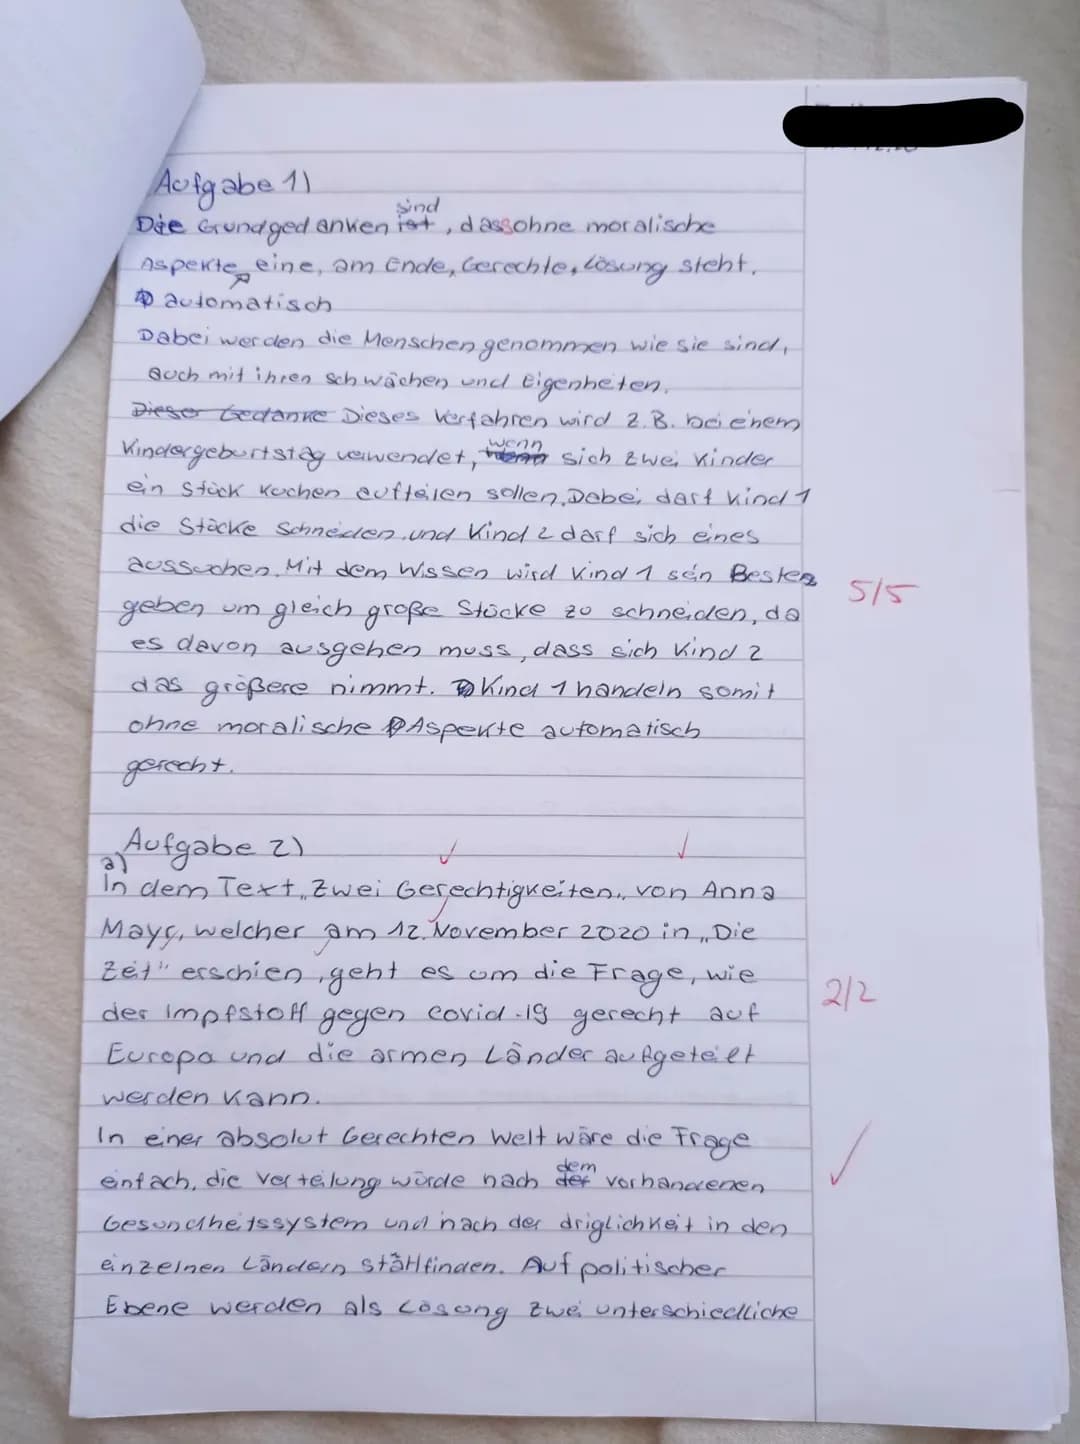 Aufgabe 1)
sind
Die Grundgedanken ist, dass ohne moralische
Aspekte eine, am Ende, Gerechte, Lösung steht.
automatisch
Dabei werden die Menschen genommen wie sie sind,
auch mit ihren Schwächen und Eigenheiten.
Dieser Gedanke Dieses Verfahren wird z.B. bei einem
wenn
Kindergeburtstag verwendet, sich zwei Kinder
ein Stück Kuchen aufteilen sollen. Dabei darf Kind 1
die Stücke Schneiden und Kind 2 darf sich eines
aussuchen. Mit dem Wissen wird Kind 1 sein Bestes
5/5
geben um gleich große Stücke zu schneiden, da
es davon ausgehen muss, dass sich Kind 2
das größere nimmt. Kind 1 handeln somit
ohne moralische Aspekte automatisch
gerecht.
Aufgabe 2)
a)
In dem Text „Zwei Gerechtigkeiten„ von Anna
Mayr, welcher am 12. November 2020 in „Die
Zeit" erschien, geht es um die Frage, wie
2/2
der Impfstoff gegen Covid-19 gerecht auf
Europa und die armen Länder aufgeteilt
werden kann.
In einer absolut Gerechten Welt wäre die Frage
dem
einfach, die Verteilung würde nach der vorhandenen
Gesundheitssystem und nach der driglichkeit in den
einzelnen Ländern stattfinden. Auf politischer
Ebene werden als Lösung zwei unterschiedliche